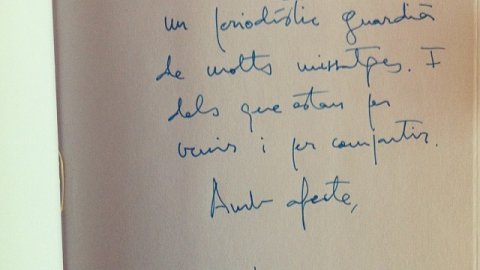 un periodístic guardià
de molts missatges. I
dels que estan per
venir i per compartir.
Amb afecte,